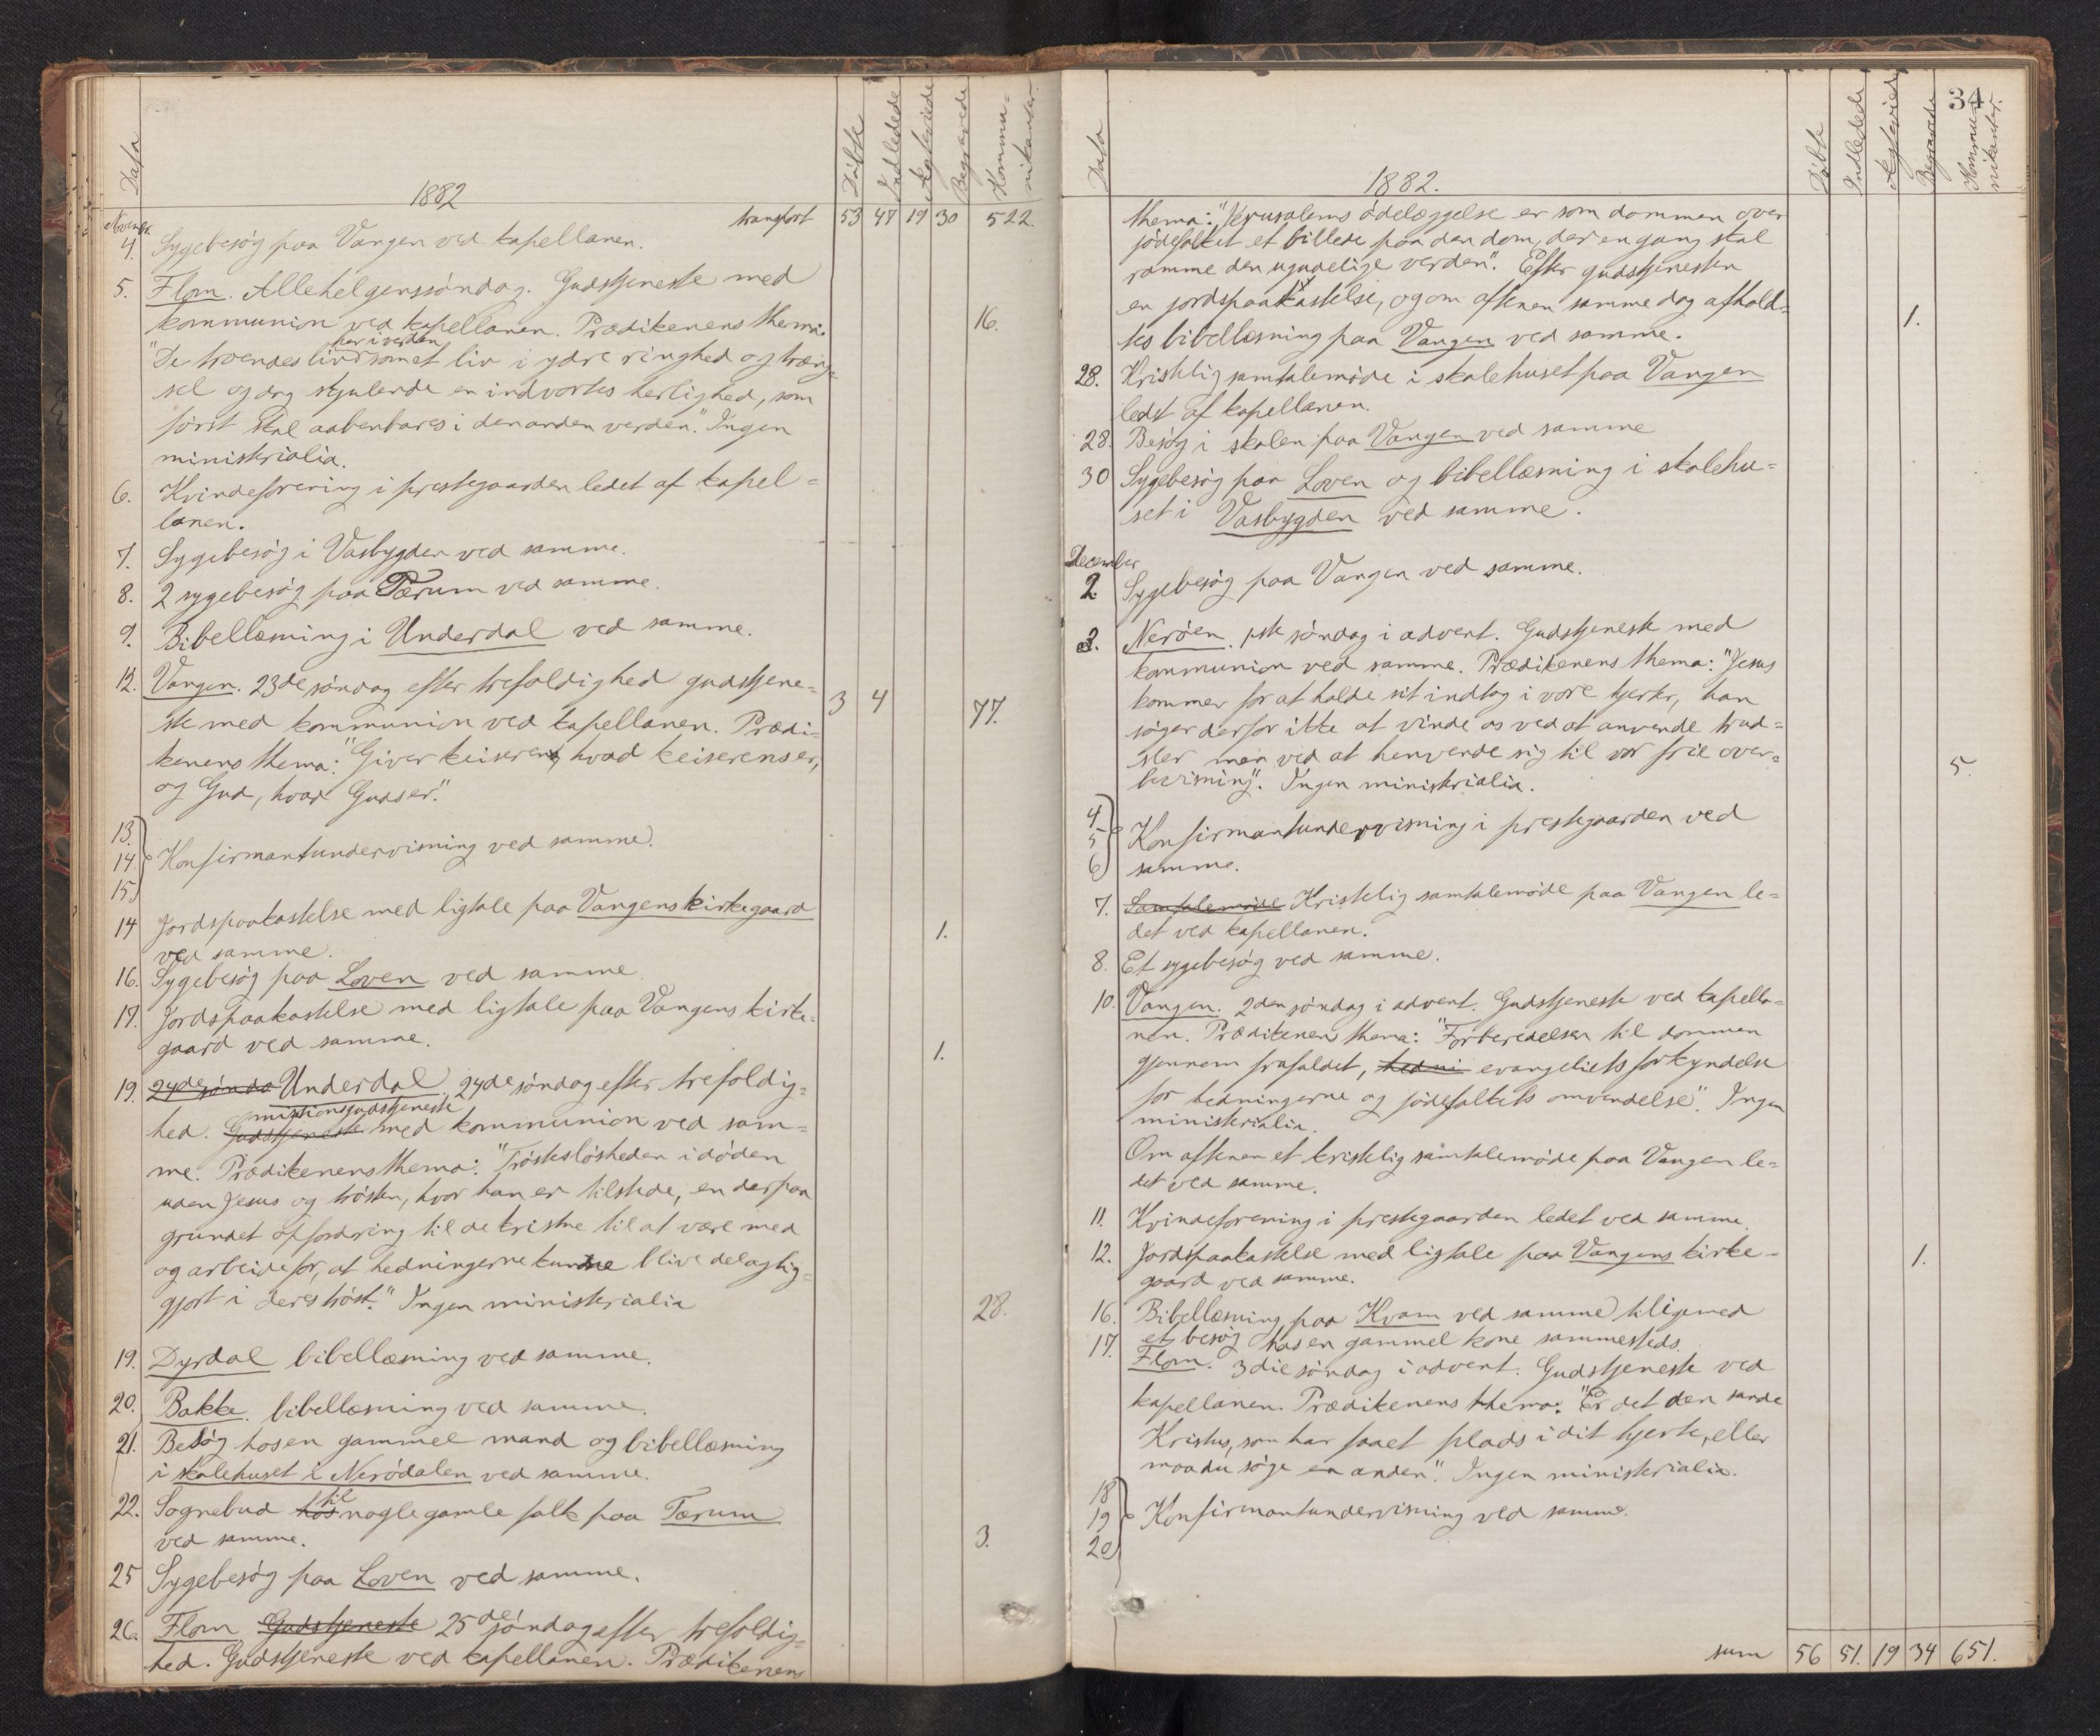 Data
1882
Döbte
Indledede
Ægteviede
Begravede
Kommu-
nikanter.
Novembr
transport 53 47 19 30 522.
4. Sygebesög paa Vangen ved kapellanen.
5. Flom. Allehelgenssöndag. Gudstjeneste med
kommunion ved kapellanen. Prædikenens thema: 16.
her i verden
"De troendes liv som et liv i ydre ringhed og træng=
sel og dog skjulende en indvortes herlighed, som
först skal aabenbares i den anden verden". Ingen
ministerialia.
6. Kvindeforening i prestegaarden ledet af kapel=
lanen.
7. Sygebesög i Vasbygden ved samme.
8. 2 sygebesög paa Tærum ved samme.
9. Bibellæsning i Underdal ved samme.
12. Vangen. 23de söndag efter trefoldighed gudstjene= 3 4
ste med kommunion ved kapellanen. Prædi= 77.
kenens thema: "Giver keiseren, hvad keiserens er,
og Gud, hvad Guds er".
13.
14 Konfirmantundervisning ved samme.
15
14 Jordspaakastelse med ligtale paa Vangens kirkegaard 1.
ved samme.
16. Sygebesög paa Loven ved samme.
17. Jordspaakastelse med ligtale paa Vangens kirke=
gaard ved samme. 1.
19. 24de sönda Underdal. 24de söndag efter trefoldig=
missionsgudstjeneste
hed. Gudstjeneste med kommunion ved sam=
me. Prædikenens thema: "Trösteslösheden i döden
uden Jesus og trösten, hvor han er tilstede, en derpaa
grundet opfordring til de kristne til at være med
og arbeide for, at hedningerne kunne blive delagtig=
gjort i deres tröst." Ingen ministerialia 28.
19. Dyrdal bibellæsning ved samme.
20. Bakke. bibellæsning ved samme.
21. Besög hos en gammel mand og bibellæsning
i skolehuset i Nerödalen ved samme.
22. Sognebud hos til nogle gamle folk paa Tærum
ved samme. 3.
25 Sygebesög paa Loven ved samme.
26. Flom Gudstjeneste 25de söndag efter trefoldig=
hed. Gudstjeneste ved kapellanen. Prædikenens
34
Data
1882.
Döbte
Indledede
Ægteviede
Begravede
Kommu-
nikanter.
thema: "Jerusalems ödelæggelse er som dommen over
jödefolket et billede paa den dom, der en gang skal
ramme den ugudelige verden". Efter gudstjenesten
en jordspaakastelse, og om aftenen samme dag afhold= 1.
tes bibellæsning paa Vangen ved samme.
28. Kristelig samtalemöde i skolehuset paa Vangen
ledet af kapellanen.
28. Besög i skolen paa Vangen ved samme
30 Sygebesög paa Loven og bibellæsning i skolehu=
set i Vasbygden ved samme.
December
2 Sygebesög paa Vangen ved samme.
3. Neröen. 1ste söndag i advent. Gudstjeneste med
kommunion ved samme. Prædikenens thema: "Jesus
kommer for at holde sit indtog i vore hjerter, han
söger derfor ikke at vinde os ved at anvende trud=
sler men ved at henvende sig til vor frie over= 5.
bevisning". Ingen ministerialia.
4
5 Konfirmantundervisning i prestegaarden ved
6 samme.
7. Samtalemöde Kristelig samtalemöde paa Vangen le=
det ved kapellanen.
8. Et sygebesög ved samme.
10. Vangen. 2den söndag i advent. Gudstjeneste ved kapella=
nen. Prædikenens thema: "Forberedelsen til dommen
gjennem frafaldet, hedni evangeliets forkyndelse
for hedningerne og jödefolkets omvendelse". Ingen
ministerialia.
Om aftenen et kristelig samtalemöde paa Vangen le=
det ved samme.
11. Kvindeforening i prestegaarden ledet ved samme.
12. Jordspaakastelse med ligtale paa Vangens kirke- 1.
gaard ved samme.
16. Bibellæsning paa Kvam ved samme tilligemed
et besög hos en gammel kone sammesteds.
17. Flom. 3die söndag i advent. Gudstjeneste ved
kapellanen. Prædikenens thema: "Er det den sande
Kristus, som har faaet plads i dit hjerte, eller
maa du söge en anden". Ingen ministerialia.
18
19 Konfirmantundervisning ved samme.
20
sum 56 51. 19 34 651.